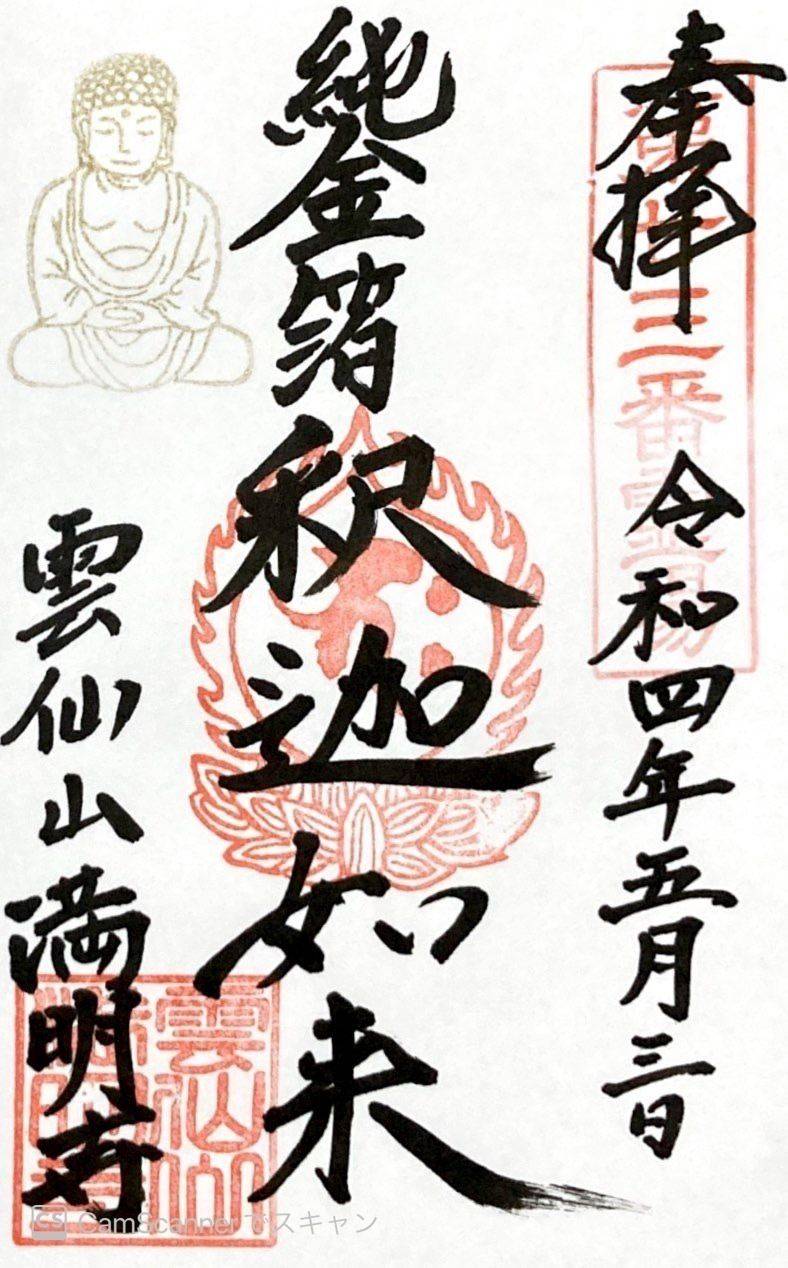 奉拝
令和四年五月三日
三番霊場
純金箔
釈迦如来
雲仙山
満明寺
雲仙山
満明寺
CS CamScannerでスキャン